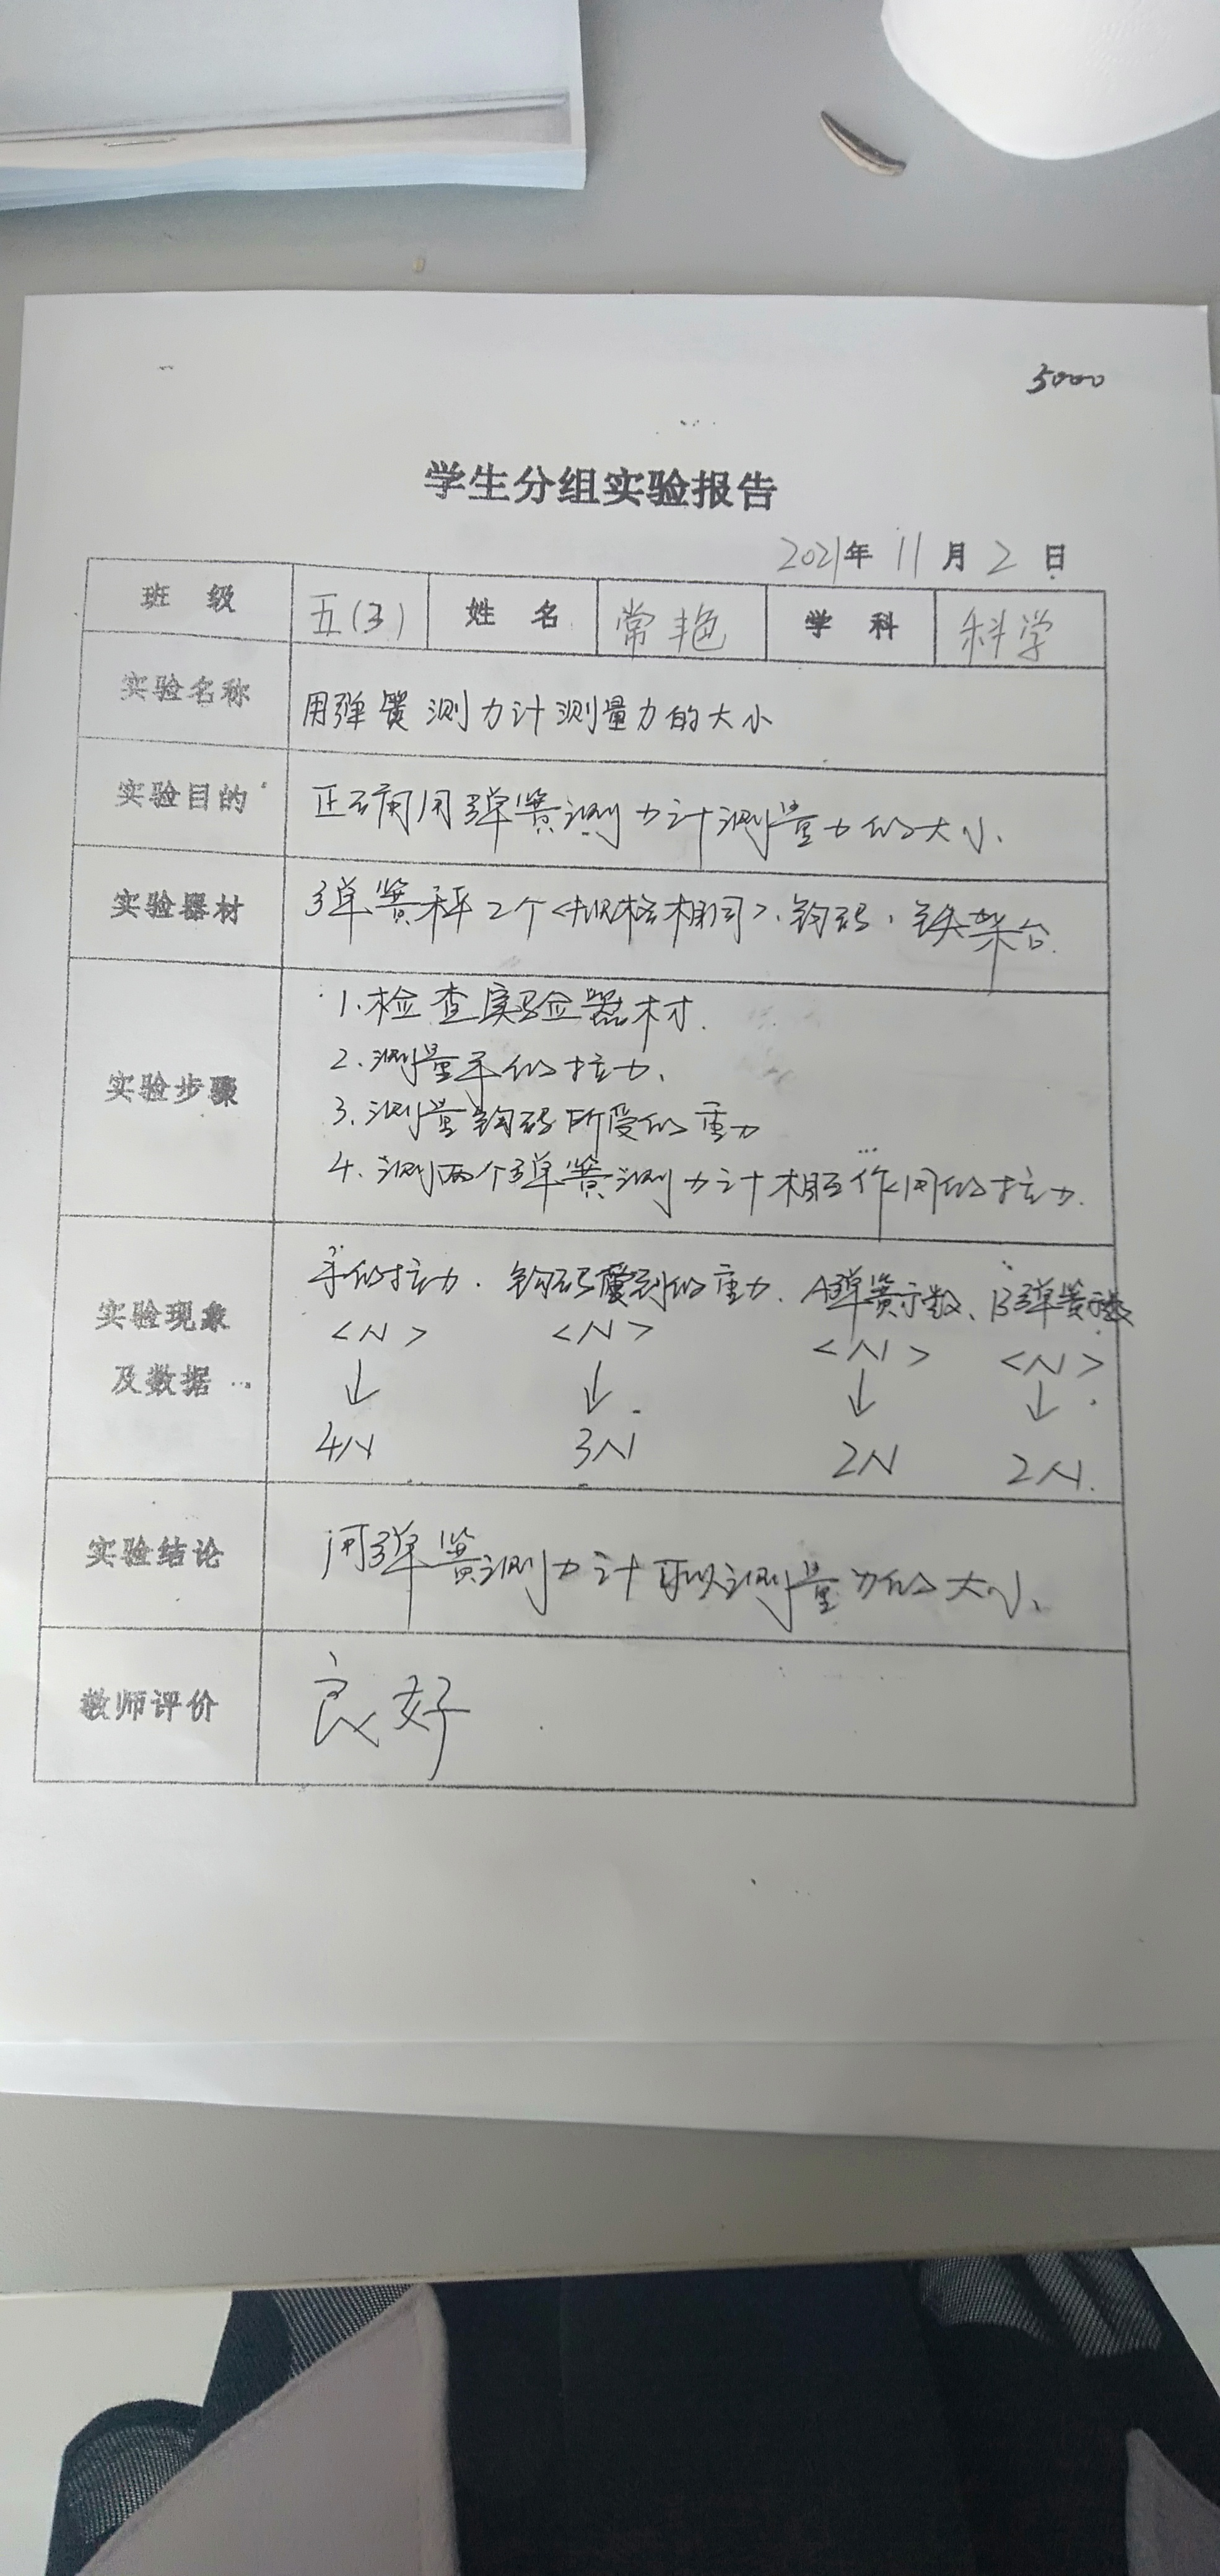 5000
学生分组实验报告
2021年 11月 2日
班 级 五(3) 姓 名 常艳 学 科 科学
实验名称 用弹簧测力计测量力的大小
实验目的 正确用弹簧测力计测量力的大小、
实验器材 弹簧秤2个<规格相同>、钩码、铁架台.
实验步骤
1.检查实验器材.
2.测量手的拉力、
3.测量钩码所受的重力
4.测两个弹簧测力计相互作用的拉力.
实验现象及数据
手的拉力.钩码受到的重力、A弹簧示数、B弹簧示数
<N> <N> <N> <N>
↓ ↓ ↓ ↓
4N 3N 2N 2N.
实验结论 用弹簧测力计可以测量力的大小、
教师评价 良好